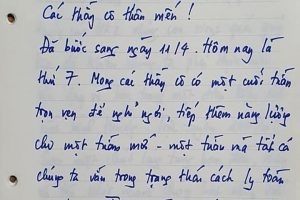 Các thầy cô thân mến!
Đã bước sang ngày 11/4. Hôm nay là
thứ 7. Mong các thầy cô có một cuối tuần
trọn vẹn để nghỉ ngơi, tiếp thêm năng lượng
cho một tuần mới - một tuần mà tất cả
chúng ta vẫn trong trạng thái cách ly toàn